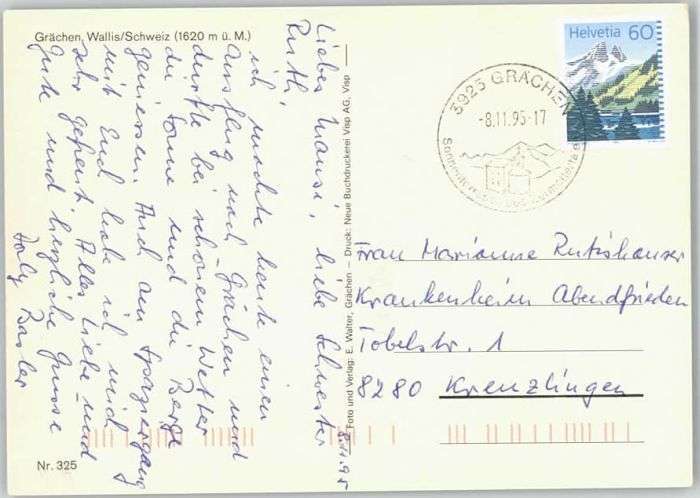 Grächen, Wallis/Schweiz (1620 m ü. M.)
8.11.95
Liebes Mausi, liebe Schwester
Ruth,
ich machte heute einen
Ausflug nach Grächen und
durfte bei schönem Wetter
die Sonne und die Berge
geniessen. Auch am Spaziergang
mit Euch habe ich mich
sehr gefreut. Alles Liebe und
Gute und herzliche Grüsse
Basler
Nr. 325
Foto und Verlag: E. Walter, Grächen – Druck: Neue Buchdruckerei Visp AG, Visp
Helvetia 60
3925 GRÄCHEN
-8.11.95-17
Frau Marianne Rutishauser
Krankenheim Abendfrieden
Tobelstr. 1
8280 Kreuzlingen